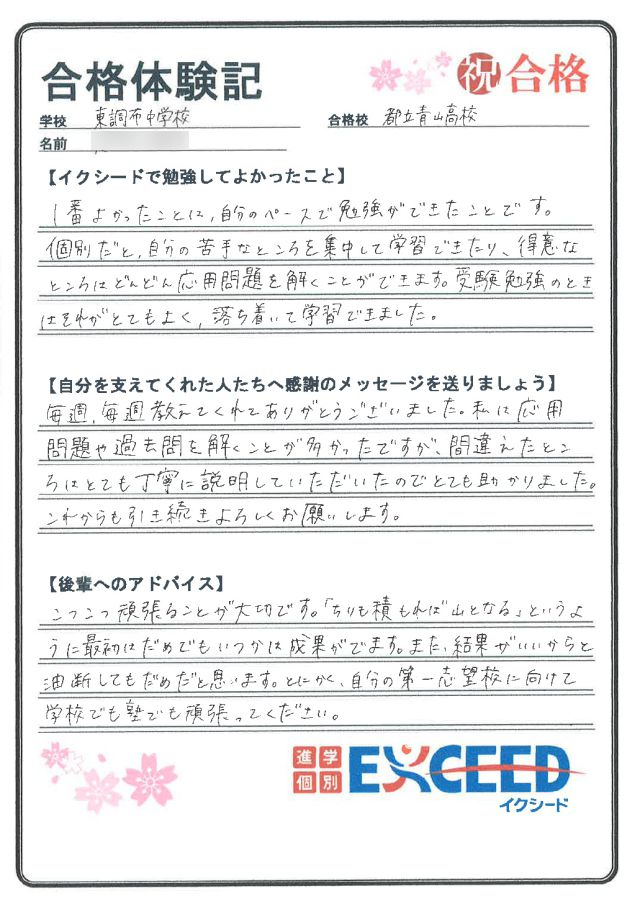 合格体験記
祝 合格
学校 東調布中学校
合格校 都立青山高校
名前
【イクシードで勉強してよかったこと】
1番よかったことは、自分のペースで勉強ができたことです。
個別だと、自分の苦手なところを集中して学習できたり、得意な
ところはどんどん応用問題を解くことができます。受験勉強のとき
はそれがとてもよく、落ち着いて学習できました。
【自分を支えてくれた人たちへ感謝のメッセージを送りましょう】
毎週、毎週教えてくれてありがとうございました。私は応用
問題や過去問を解くことが多かったですが、間違えたとこ
ろはとても丁寧に説明していただいたのでとても助かりました。
これからも引き続きよろしくお願いします。
【後輩へのアドバイス】
こつこつ頑張ることが大切です。「ちりも積もれば山となる」というよ
うに最初はだめでもいつかは成果がでます。また、結果がいいからと
油断してもだめだと思います。とにかく、自分の第一志望校に向けて
学校でも塾でも頑張ってください。
進学
個別
EXCEED
イクシード